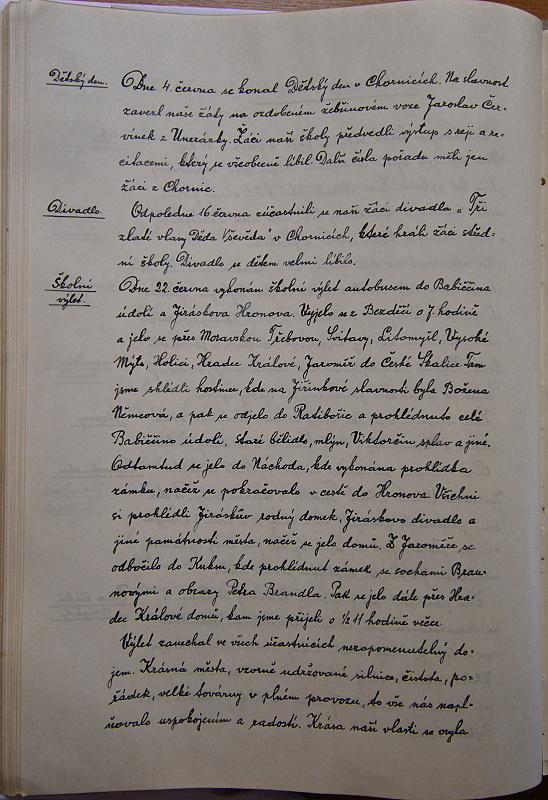 Dětský den.
Dne 4. června se konal Dětský den v Chornicích. Na slavnost
zavezl naše žáky na ozdobeném žebřinovém voze Jaroslav Čer-
vínek z Unerázky. Žáci naší školy předvedli výstup s reji a re-
citacemi, který se všeobecně líbil. Další čísla pořadu měli jen
žáci z Chornic.
Divadlo.
Odpoledne 16 června zúčastnili se naši žáci divadla „Tři
zlaté vlasy Děda Vševěda" v Chornicích, které hráli žáci střed-
ní školy. Divadlo se dětem velmi líbilo.
Školní
výlet.
Dne 22. června vykonán školní výlet autobusem do Babiččina
údolí a Jiráskova Hronova. Vyjelo se z Bezděčí o 7. hodině
a jelo se přes Moravskou Třebovou, Svitavy, Litomyšl, Vysoké
Mýto, Holici, Hradec Králové, Jaroměř do České Skalice. Tam
jsme shlédli hostinec, kde na Jiřinkové slavnosti byla Božena
Němcová, a pak se odjelo do Ratibořic a prohlédnuto celé
Babiččino údolí, staré bělidlo, mlýn, Viktorčin splav a jiné.
Odtamtud se jelo do Náchoda, kde vykonána prohlídka
zámku, načež se pokračovalo v cestě do Hronova. Všichni
si prohlédli Jiráskův rodný domek, Jiráskovo divadlo a
jiné památnosti města, načež se jelo domů. Z Jaroměře se
odbočilo do Kuksu, kde prohlédnut zámek se sochami Brau-
novými a obrazy Petra Brandla. Pak se jelo dále přes Hra-
dec Králové domů, kam jsme přijeli o ½ 11 hodině večer.
Výlet zanechal ve všech účastnících nezapomenutelný do-
jem. Krásná města, vzorně udržované silnice, čistota, po-
řádek, velké továrny v plném provozu, to vše nás napl-
ňovalo uspokojením a radostí. Krása naší vlasti se vryla